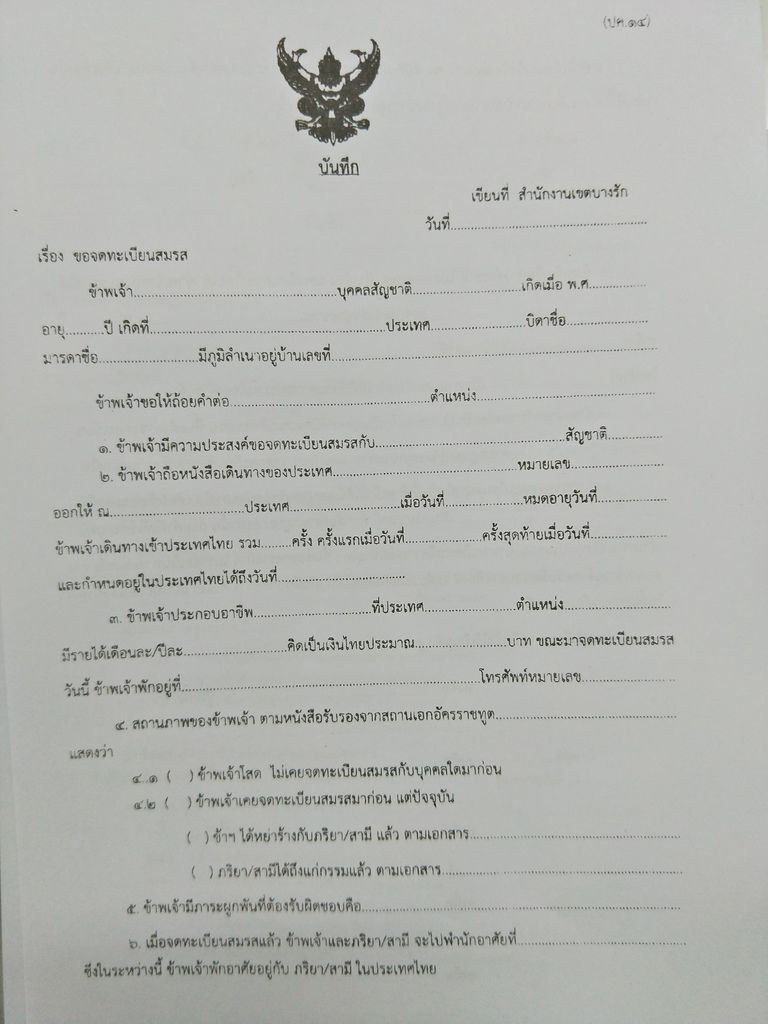 (ปค.๑๔)
บันทึก
เขียนที่ สำนักงานเขตบางรัก
วันที่..................................................
เรื่อง ขอจดทะเบียนสมรส
ข้าพเจ้า..................................................บุคคลสัญชาติ...........................เกิดเมื่อ พ.ศ..............
อายุ.........ปี เกิดที่..........................................................ประเทศ.......................บิดาชื่อ....................
มารดาชื่อ.........................มีภูมิลำเนาอยู่บ้านเลขที่................................................................................
ข้าพเจ้าขอให้ถ้อยคำต่อ.................................................ตำแหน่ง...........................................
๑. ข้าพเจ้ามีความประสงค์ขอจดทะเบียนสมรสกับ...............................................สัญชาติ.............
๒. ข้าพเจ้าถือหนังสือเดินทางของประเทศ..............................................หมายเลข.......................
ออกให้ ณ..................................ประเทศ...........................เมื่อวันที่...................หมดอายุวันที่.................
ข้าพเจ้าเดินทางเข้าประเทศไทย รวม........ครั้ง ครั้งแรกเมื่อวันที่...................ครั้งสุดท้ายเมื่อวันที่...................
และกำหนดอยู่ในประเทศไทยได้ถึงวันที่................................
๓. ข้าพเจ้าประกอบอาชีพ.............................ที่ประเทศ.......................ตำแหน่ง..........................
มีรายได้เดือนละ/ปีละ..........................คิดเป็นเงินไทยประมาณ.......................บาท ขณะมาจดทะเบียนสมรส
วันนี้ ข้าพเจ้าพักอยู่ที่..........................................................................โทรศัพท์หมายเลข.......................
๔. สถานภาพของข้าพเจ้า ตามหนังสือรับรองจากสถานเอกอัครราชทูต.............................................
แสดงว่า
๔.๑ ( ) ข้าพเจ้าโสด ไม่เคยจดทะเบียนสมรสกับบุคคลใดมาก่อน
๔.๒ ( ) ข้าพเจ้าเคยจดทะเบียนสมรสมาก่อน แต่ปัจจุบัน
( ) ข้าฯ ได้หย่าร้างกับภริยา/สามี แล้ว ตามเอกสาร....................................................
( ) ภริยา/สามีได้ถึงแก่กรรมแล้ว ตามเอกสาร............................................................
๕. ข้าพเจ้ามีภาระผูกพันที่ต้องรับผิดชอบคือ................................................................................
๖. เมื่อจดทะเบียนสมรสแล้ว ข้าพเจ้าและภริยา/สามี จะไปพำนักอาศัยที่..........................................
ซึ่งในระหว่างนี้ ข้าพเจ้าพักอาศัยอยู่กับ ภริยา/สามี ในประเทศไทย